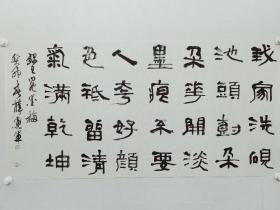 我家洗硯
池頭樹朵
朵華開淡
墨痕不要
人夸好顏
色祇留清
氣滿乾坤
錄王冕墨梅
癸卯